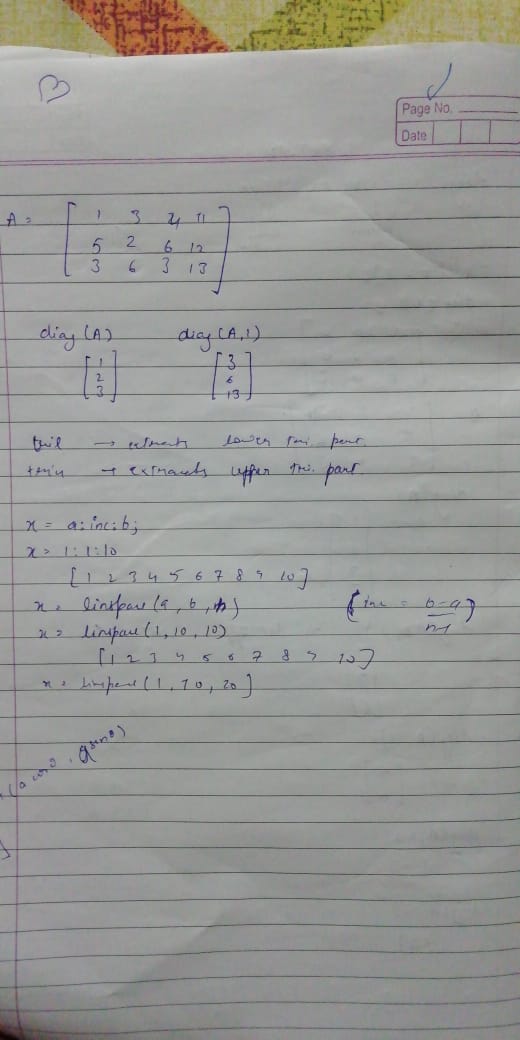 Page No.
Date
A =
1 3 4 11
5 2 6 12
3 6 3 13
diag (A) diag (A,1)
1 3
2 6
3 13
tril → extracts lower tri. part
triu → extracts upper tri. part
x = a:inc:b;
x = 1:1:10
[1 2 3 4 5 6 7 8 9 10]
x = linspace (a, b, n) (inc = b-a/n-1)
x = linspace (1, 10, 10)
[1 2 3 4 5 6 7 8 9 10]
x = linspace (1, 10, 20]
(a cosθ, a sinθ)